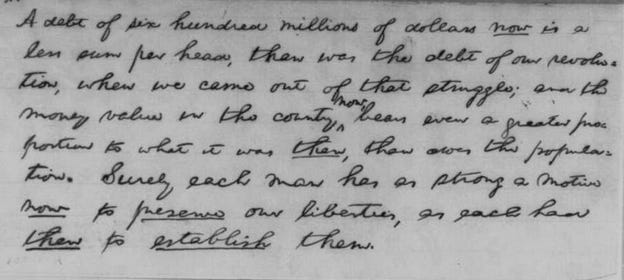 A debt of six hundred millions of dollars now is a
less sum per head, than was the debt of our revolu-
tion, when we came out of that struggle; and the
money value in the country, now, bears even a greater pro-
portion to what it was then, than does the popula-
tion. Surely each man has as strong a motive
now to preserve our liberties, as each had
then to establish them.